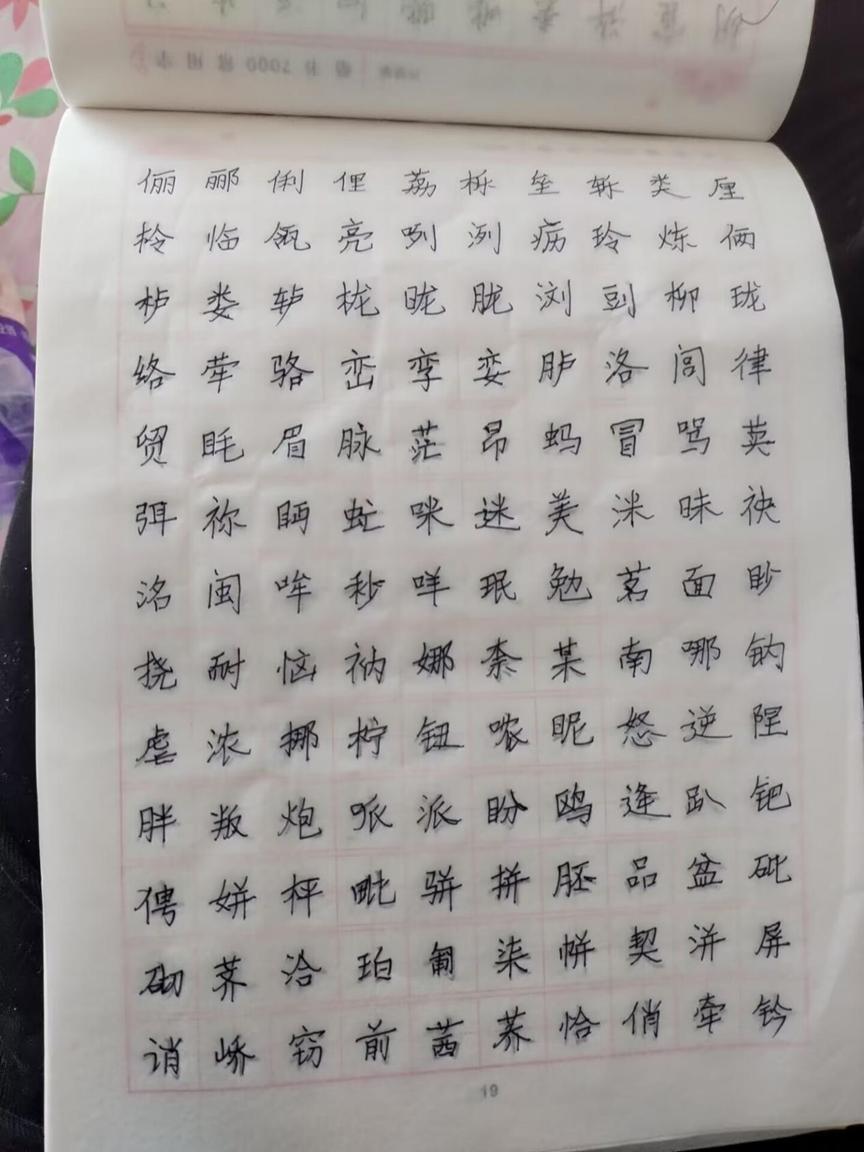 俪 郦 俐 俚 荔 栎 垒 轹 类 厘
柃 临 瓴 亮 咧 洌 疬 玲 炼 俩
栌 娄 轳 栊 昽 胧 浏 剅 柳 珑
络 荦 骆 峦 孪 娈 胪 洛 闾 律
贸 眊 眉 脉 茫 昴 蚂 冒 骂 荬
弭 祢 眄 虻 咪 迷 美 洣 昧 袂
洺 闽 哞 秒 咩 珉 勉 茗 面 眇
挠 耐 恼 衲 娜 柰 某 南 哪 钠
虐 浓 挪 柠 钮 哝 昵 怒 逆 陧
胖 叛 炮 哌 派 盼 鸥 逄 趴 钯
俜 姘 枰 毗 骈 拼 胚 品 盆 砒
砌 荠 洽 珀 匍 柒 帡 契 洴 屏
诮 峤 窃 前 茜 荞 恰 俏 牵 钤
19